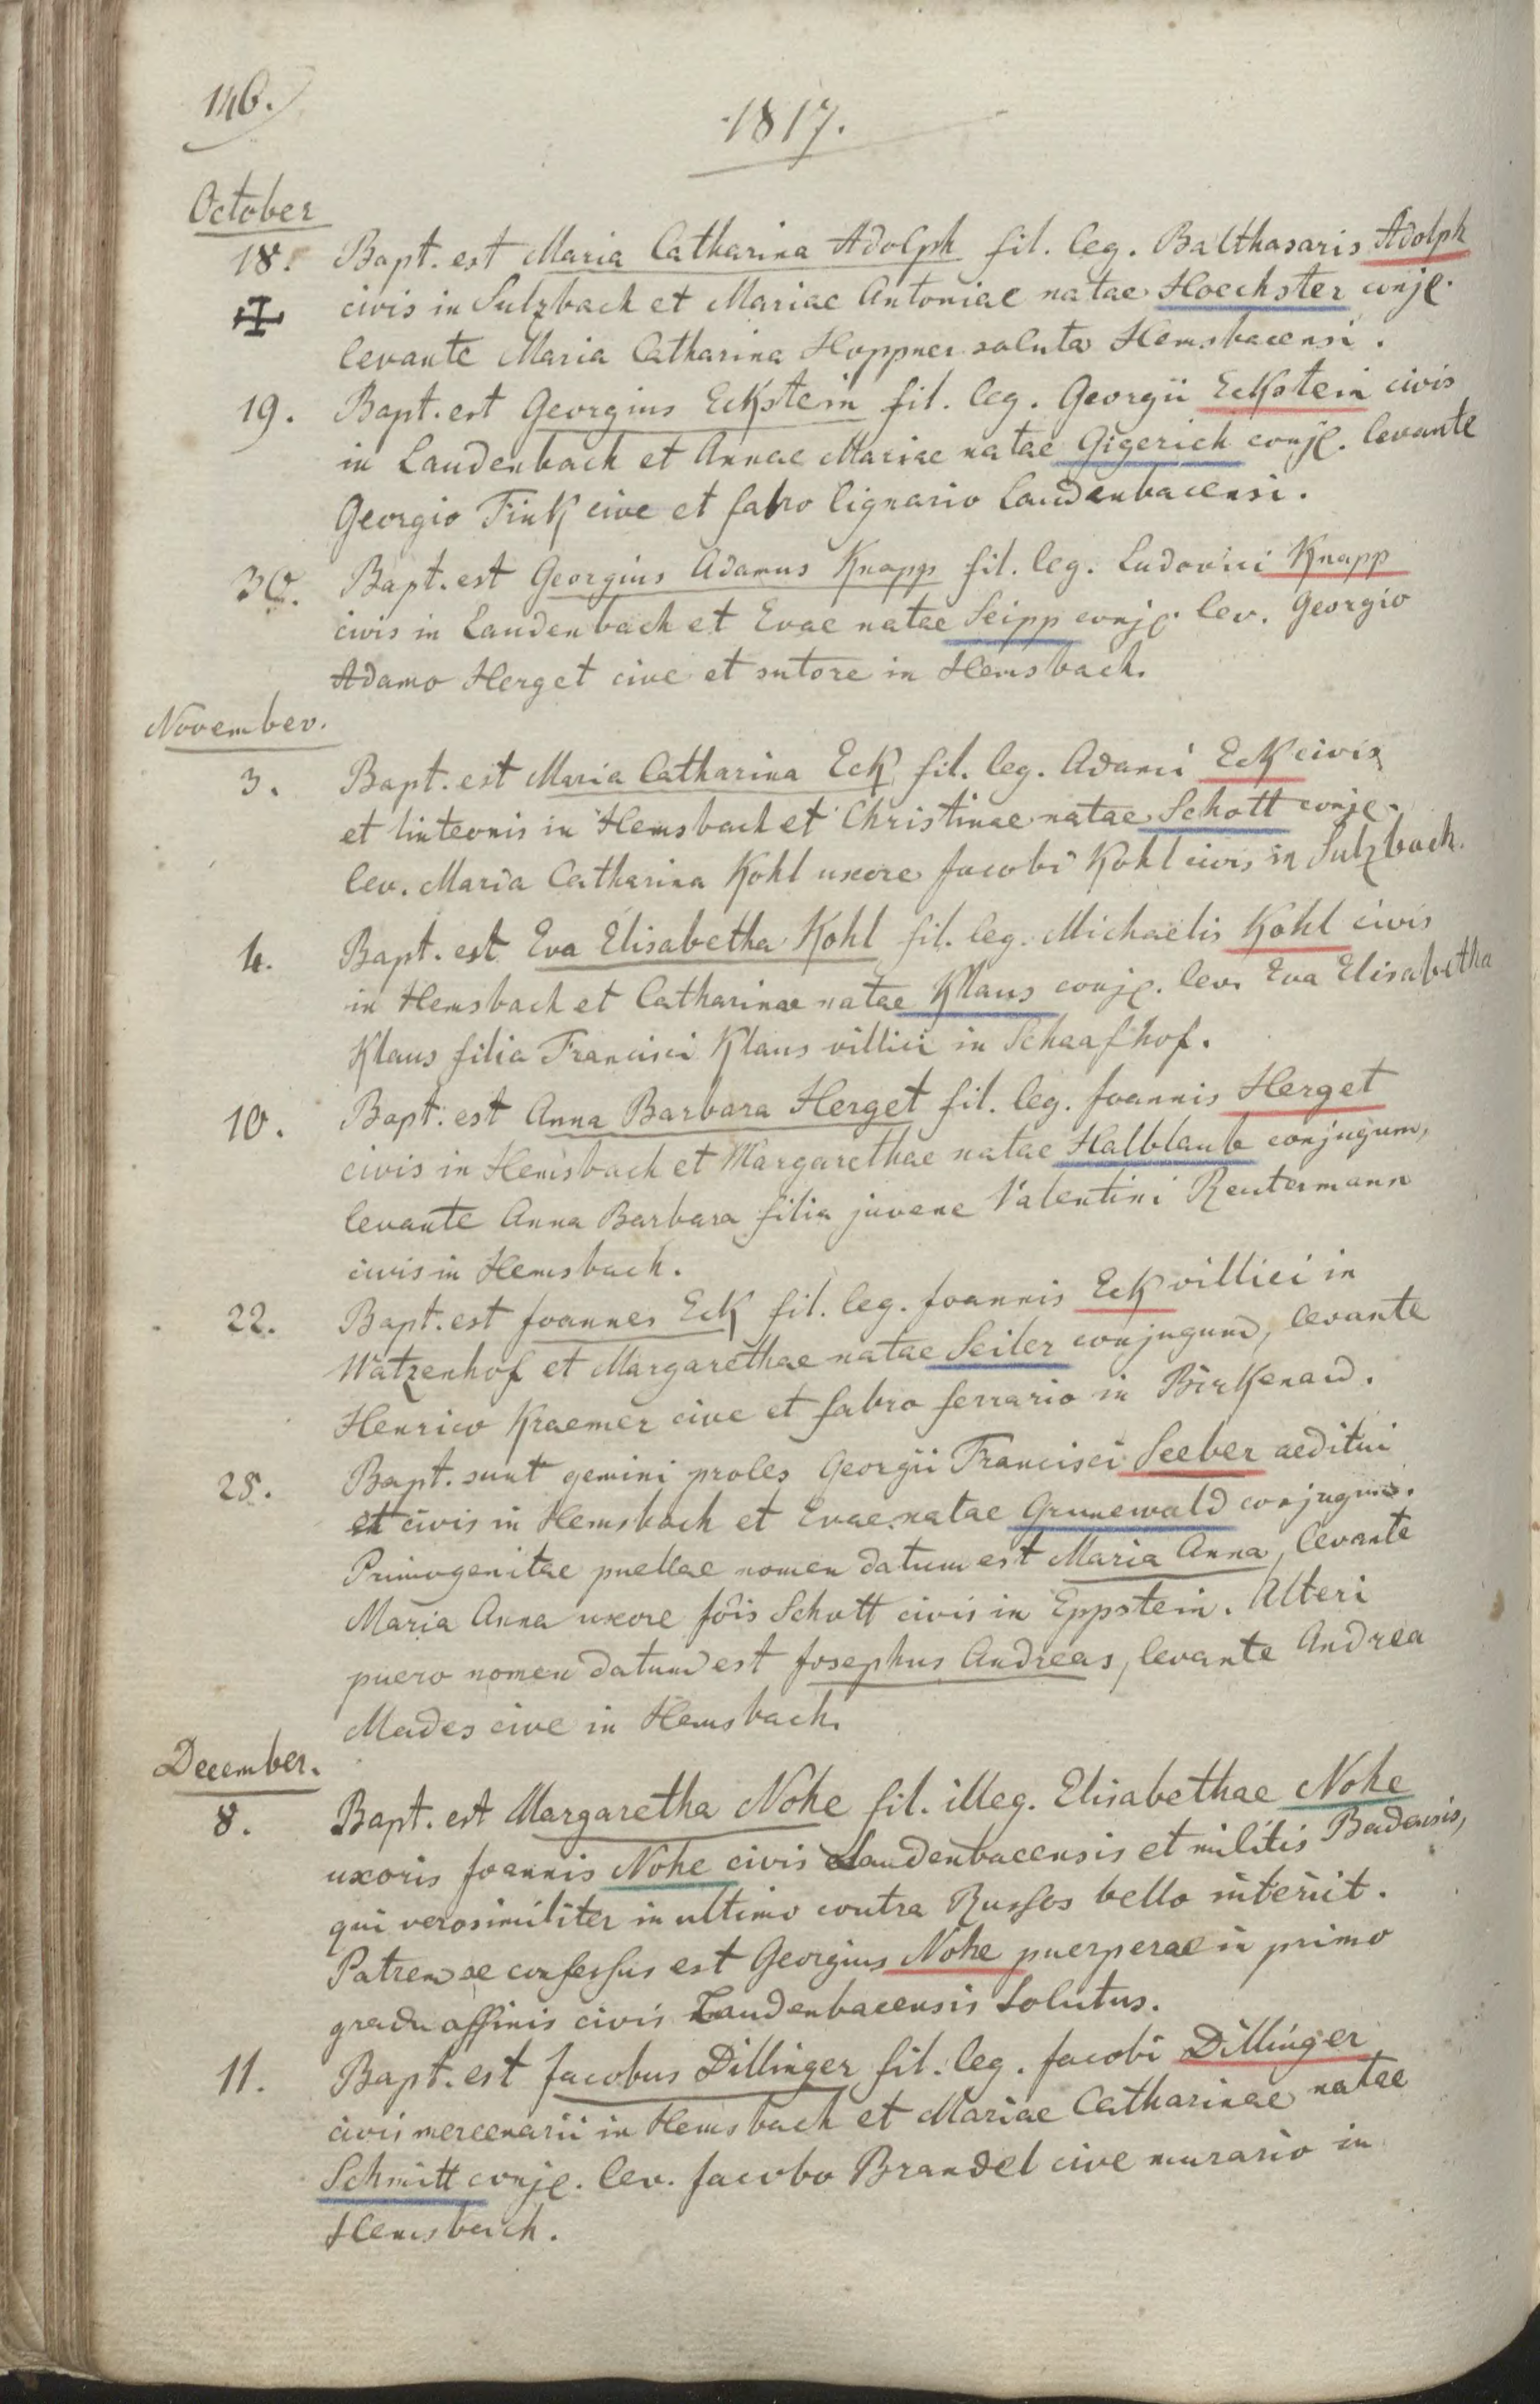 146.
1817.
October
18. Bapt. est Maria Catharina Adolph fil. leg. Balthasaris Adolph
civis in Sulzbach et Mariae Antoniae natae Hoechster conjg.
levante Maria Catharina Hoppner soluta Hemsbacensi.
19. Bapt. est Georgius Eckstein fil. leg. Georgii Eckstein civis
in Laudenbach et Annae Mariae natae Gigerich conjg. levante
Georgio Fink cive et fabro lignario Laudenbacensi.
30. Bapt. est Georgius Adamus Knapp fil. leg. Ludovici Knapp
civis in Laudenbach et Evae natae Seipp conjg. lev. Georgio
Adamo Herget cive et sutore in Hemsbach.
November.
3. Bapt. est Maria Catharina Eck fil. leg. Adami Eck civis
et linteonis in Hemsbach et Christinae natae Schott conjg.
lev. Maria Catharina Kohl uxore Jacobi Kohl civis in Sulzbach.
4. Bapt. est Eva Elisabetha Kohl fil. leg. Michaelis Kohl civis
in Hemsbach et Catharinae natae Klaus conjg. lev. Eva Elisabetha
Klaus filia Francisci Klaus villici in Schaafhof.
10. Bapt. est Anna Barbara Herget fil. leg. Joannis Herget
civis in Hemsbach et Margarethae natae Halblaub conjugum,
levante Anna Barbara filia juvene Valentini Reutermann
civis in Hemsbach.
22. Bapt. est Joannes Eck fil. leg. Joannis Eck villici in
Watzenhof et Margarethae natae Seiler conjugum, levante
Henrico Kraemer cive et fabro ferrario in Birkenau.
25. Bapt. sunt gemini proles Georgii Francisci Seeber aeditui
et civis in Hemsbach et Evae natae Grunewald conjugum.
Primogenitae puellae nomen datum est Maria Anna, levante
Maria Anna uxore Jois Schott civis in Eppstein. Alteri
puero nomen datum est Josephus Andreas, levante Andrea
Mades cive in Hemsbach.
December.
8. Bapt. est Margaretha Nohe fil. illeg. Elisabethae Nohe
uxoris Joannis Nohe civis Laudenbacensis et militis Badensis,
qui verosimiliter in ultimo contra Russos bello interiit.
Patrem se confessus est Georgius Nohe puerperae in primo
gradu affinis civis Laudenbacensis solutus.
11. Bapt. est Jacobus Dillinger fil. leg. Jacobi Dillinger
civis mercenarii in Hemsbach et Mariae Catharinae natae
Schmitt conjg. lev. Jacobo Brandel cive murario in
Hemsbach.